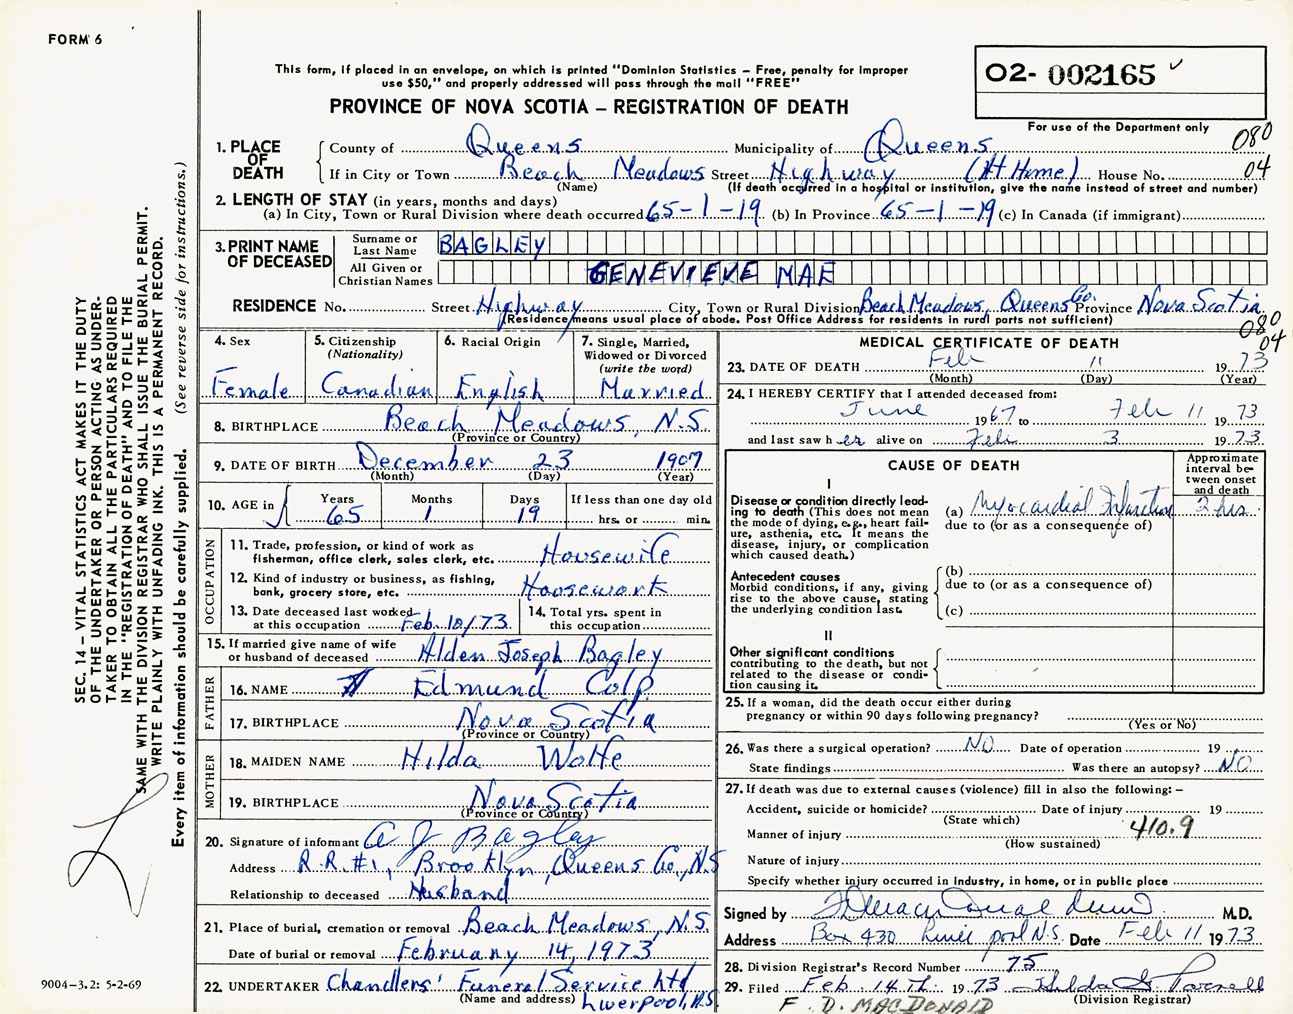 FORM 6
This form, if placed in an envelope, on which is printed "Dominion Statistics – Free, penalty for improper
use $50," and properly addressed will pass through the mail "FREE"
PROVINCE OF NOVA SCOTIA – REGISTRATION OF DEATH
02- 002165
For use of the Department only
080
04
1. PLACE OF DEATH
County of Queens Municipality of Queens
If in City or Town Beach Meadows Street Highway (At Home) House No.
(Name) (If death occurred in a hospital or institution, give the name instead of street and number)
2. LENGTH OF STAY (in years, months and days)
(a) In City, Town or Rural Division where death occurred 65-1-19 (b) In Province 65-1-19 (c) In Canada (if immigrant)
3. PRINT NAME OF DECEASED
Surname or Last Name BAGLEY
All Given or Christian Names GENEVIEVE MAE
RESIDENCE No. Street Highway City, Town or Rural Division Beach Meadows, Queens Co. Province Nova Scotia
(Residence means usual place of abode. Post Office Address for residents in rural parts not sufficient)
080
04
4. Sex Female
5. Citizenship (Nationality) Canadian
6. Racial Origin English
7. Single, Married, Widowed or Divorced (write the word) Married
8. BIRTHPLACE Beach Meadows, N.S.
(Province or Country)
9. DATE OF BIRTH December 23 1907
(Month) (Day) (Year)
10. AGE in Years 65 Months 1 Days 19 If less than one day old hrs. or min.
OCCUPATION
11. Trade, profession, or kind of work as fisherman, office clerk, sales clerk, etc. Housewife
12. Kind of industry or business, as fishing, bank, grocery store, etc. Housework
13. Date deceased last worked at this occupation Feb. 10/73
14. Total yrs. spent in this occupation
15. If married give name of wife or husband of deceased Alden Joseph Bagley
FATHER
16. NAME Edmund Colp
17. BIRTHPLACE Nova Scotia
(Province or Country)
MOTHER
18. MAIDEN NAME Hilda Wolfe
19. BIRTHPLACE Nova Scotia
(Province or Country)
20. Signature of informant A J Bagley
Address R.R.#1, Brooklyn, Queens Co., N.S
Relationship to deceased Husband
21. Place of burial, cremation or removal Beach Meadows, N.S.
Date of burial or removal February 14, 1973
22. UNDERTAKER Chandlers' Funeral Service Ltd
(Name and address) Liverpool, N.S
MEDICAL CERTIFICATE OF DEATH
23. DATE OF DEATH Feb 11 1973
(Month) (Day) (Year)
24. I HEREBY CERTIFY that I attended deceased from:
June 1967 to Feb 11 1973
and last saw her alive on Feb 3 1973
CAUSE OF DEATH
Approximate interval between onset and death
I
Disease or condition directly leading to death (This does not mean the mode of dying, e.g., heart failure, asthenia, etc. It means the disease, injury, or complication which caused death.)
(a) Myocardial Infarction 2 hrs.
due to (or as a consequence of)
Antecedent causes
Morbid conditions, if any, giving rise to the above cause, stating the underlying condition last.
(b)
due to (or as a consequence of)
(c)
II
Other significant conditions contributing to the death, but not related to the disease or condition causing it.
25. If a woman, did the death occur either during
pregnancy or within 90 days following pregnancy?
(Yes or No)
26. Was there a surgical operation? NO Date of operation 19
State findings Was there an autopsy? NO
27. If death was due to external causes (violence) fill in also the following: –
Accident, suicide or homicide? Date of injury 19
(State which)
Manner of injury 410.9
(How sustained)
Nature of injury
Specify whether injury occurred in industry, in home, or in public place
Signed by M.D.
Address Box 430 Liverpool N.S. Date Feb 11 1973
28. Division Registrar's Record Number 75
29. Filed Feb. 14th. 1973 Hilda G. Parnell
(Division Registrar)
F. D. MACDONALD
SEC. 14 – VITAL STATISTICS ACT MAKES IT THE DUTY
OF THE UNDERTAKER OR PERSON ACTING AS UNDER-
TAKER TO OBTAIN ALL THE PARTICULARS REQUIRED
IN THE "REGISTRATION OF DEATH" AND TO FILE THE
SAME WITH THE DIVISION REGISTRAR WHO SHALL ISSUE THE BURIAL PERMIT.
WRITE PLAINLY WITH UNFADING INK. THIS IS A PERMANENT RECORD.
Every item of information should be carefully supplied. (See reverse side for instructions.)
9004-3.2: 5-2-69